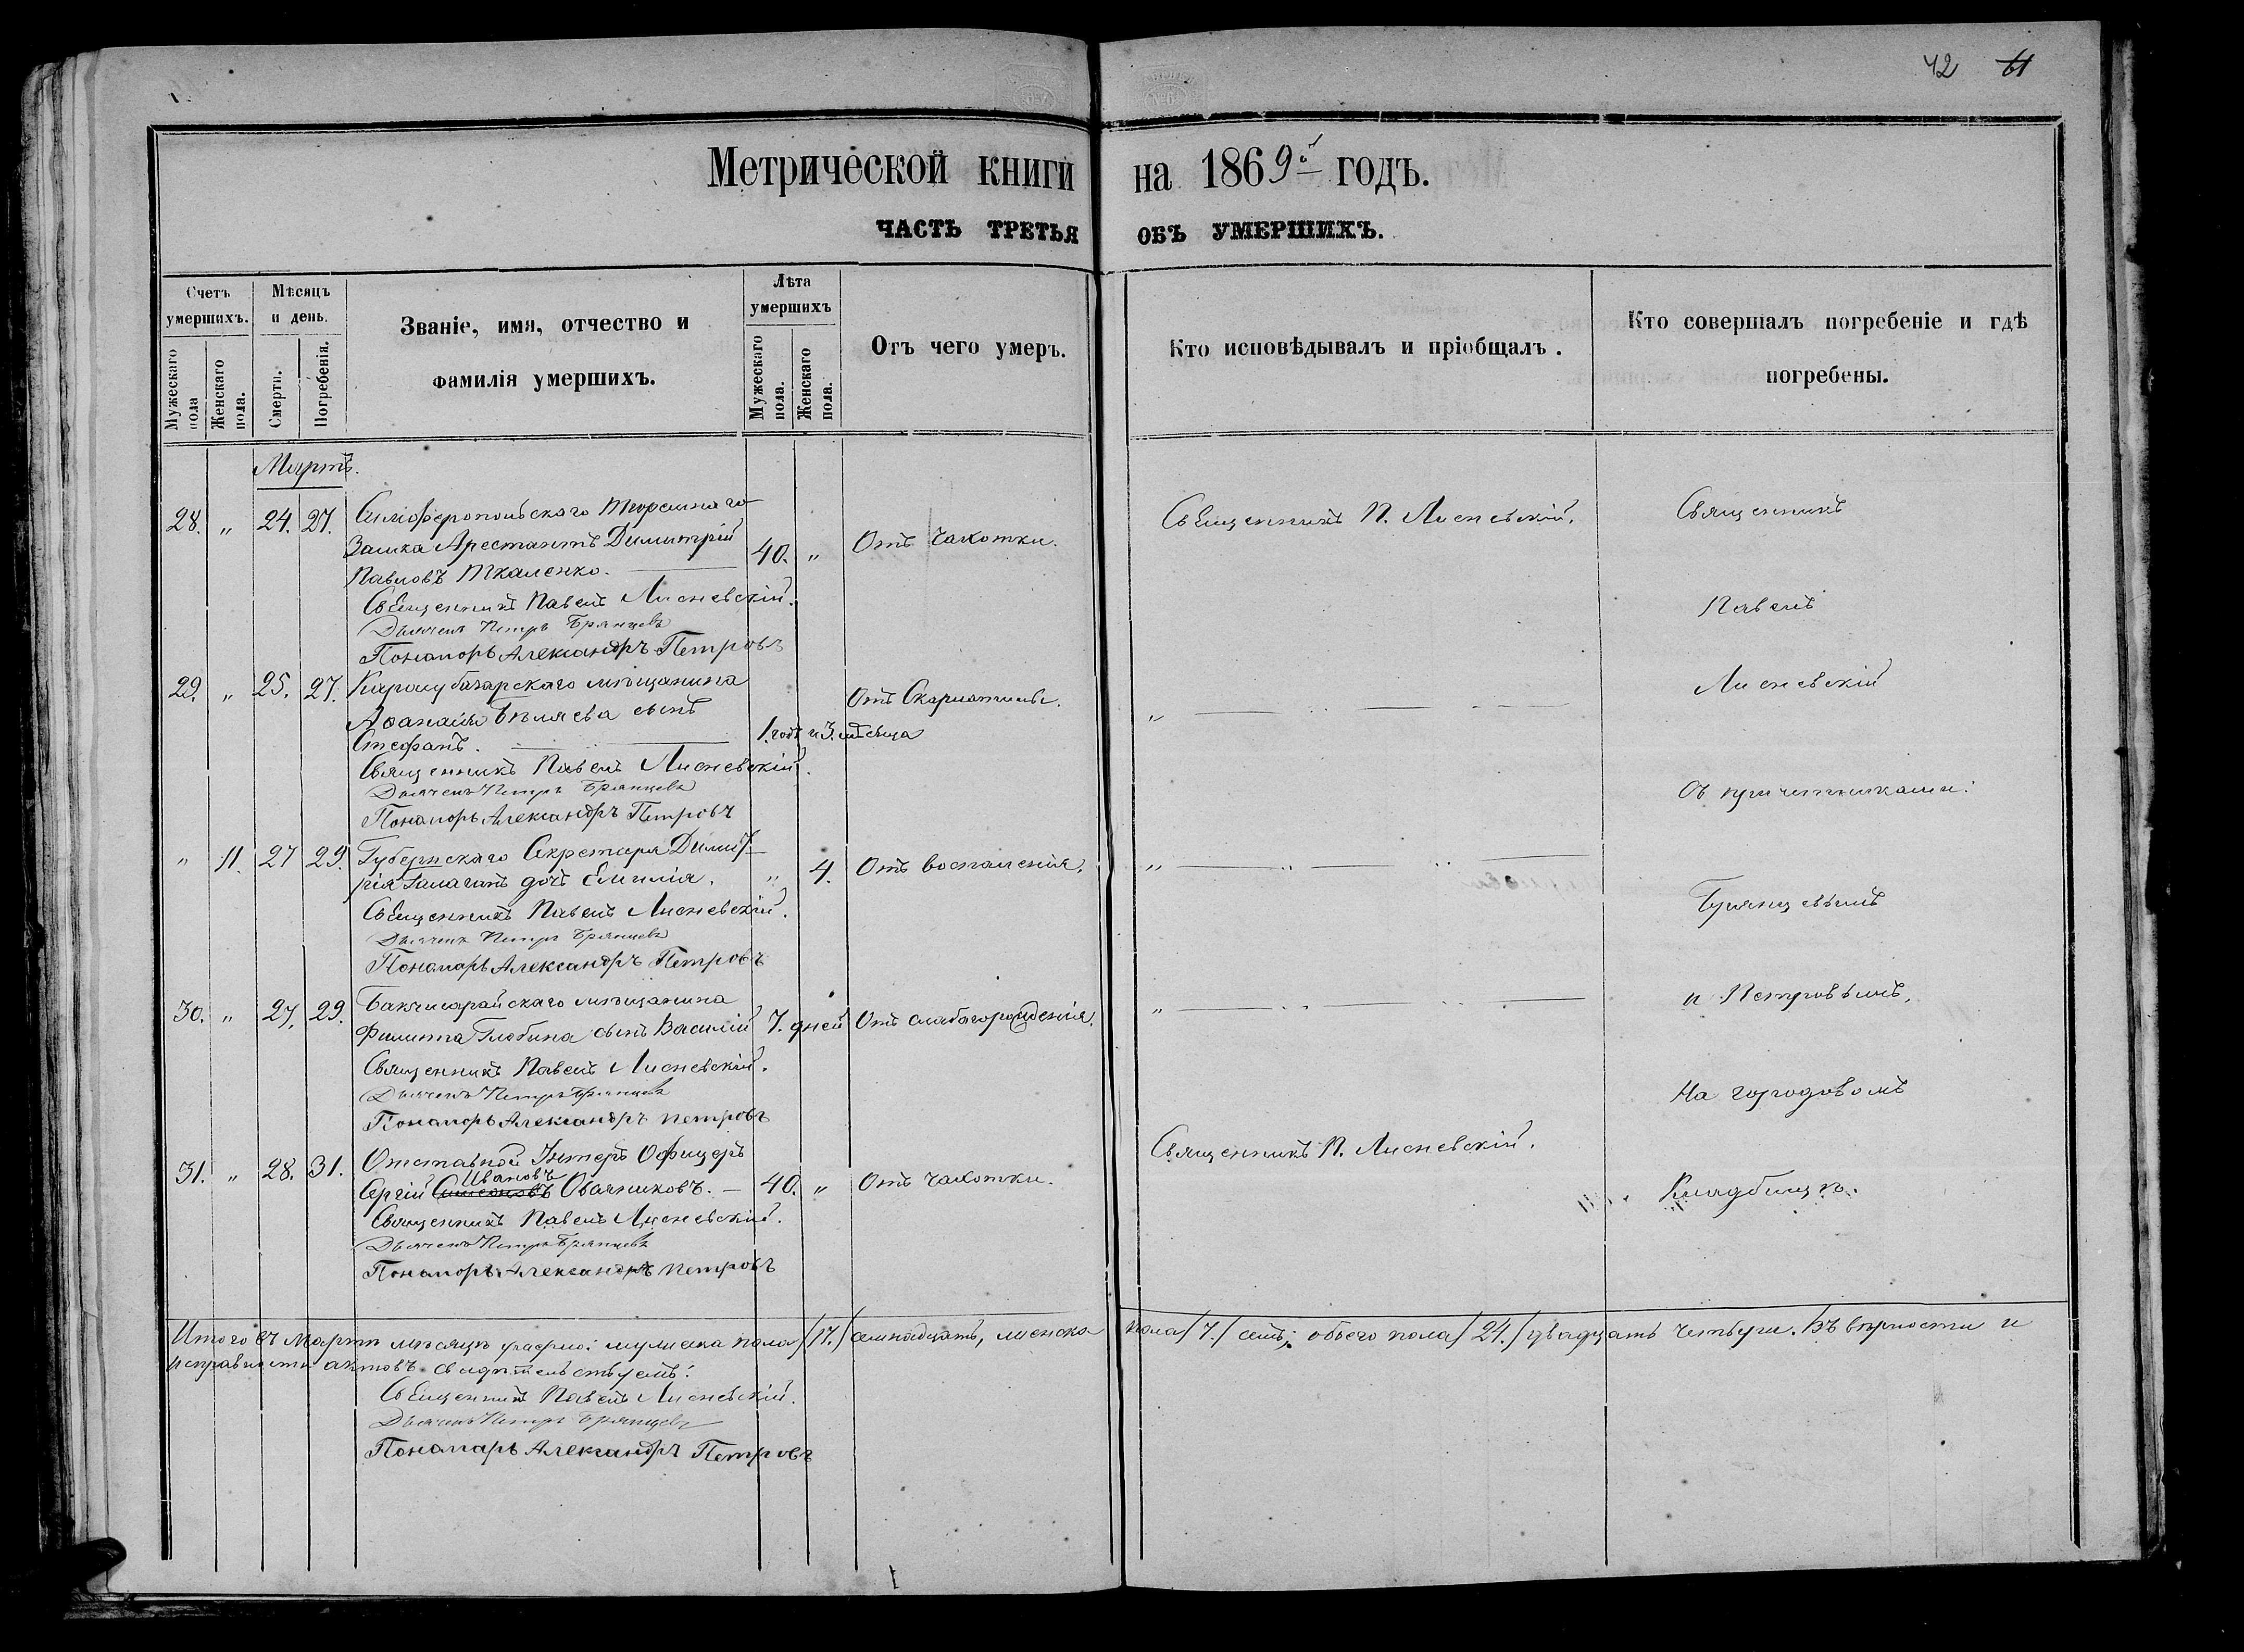 42 61
Метрической книги на 1869й годъ.
ЧАСТЬ ТРЕТЬЯ ОБЪ УМЕРШИХЪ.
Счетъ умершихъ.
Мужескаго пола
Женскаго пола.
Мѣсяцъ и день.
Смерти.
Погребенія.
Званіе, имя, отчество и
фамилія умершихъ.
Лѣта умершихъ
Мужескаго пола.
Женскаго пола.
Отъ чего умеръ.
Кто исповѣдывалъ и пріобщалъ.
Кто совершалъ погребеніе и гдѣ
погребены.
Мартъ.
28. „ 24. 27. Симферопольскаго тюремнаго
Замка Арестантъ Димитрій 40. „ Отъ Чахотки.
Павловъ Ткаленко.
Священникъ П. Лисневскій.
Священникъ Павелъ Лисневскій.
Дьячекъ Петръ Брянцевъ
Пономарь Александръ Петровъ
29. „ 25. 27. Карасубазарскаго мѣщанина
Аѳанасія Бѣляева сынъ Отъ Скарлатины.
Стефанъ. 1. годъ и 3. мѣсяца
Священникъ Павелъ Лисневскій.
Дьячекъ Петръ Брянцевъ
Пономарь Александръ Петровъ
„ 11. 27 29. Губернскаго Секретаря Димит-
рія Галаганъ дочь Емилія. „ 4. Отъ воспаленія.
Священникъ Павелъ Лисневскій.
Дьячекъ Петръ Брянцевъ
Пономарь Александръ Петровъ
30. „ 27. 29. Бакчисарайскаго мѣщанина
Филиппа Глобина сынъ Василій 7. дней Отъ слабагорожденія.
Священникъ Павелъ Лисневскій.
Дьячекъ Петръ Брянцевъ
Пономарь Александръ Петровъ
31. „ 28. 31. Отставной Унтеръ Офицеръ
Ивановъ
Сергій Симеоновъ Овчинниковъ. 40. „ Отъ чахотки.
Священникъ П. Лисневскій.
Священникъ Павелъ Лисневскій.
Дьячекъ Петръ Брянцевъ
Пономарь Александръ Петровъ
Священникъ
Павелъ
Лисневскій
Съ причетниками:
Брянцевымъ
и Петровымъ,
На городовомъ
Кладбищѣ.
Итого въ Мартѣ мѣсяцѣ умерло: мужеска пола /17./ семнадцать, женска пола /7./ семь; обоего пола /24./ двадцать четыре. Въ вѣрности и
исправности актовъ свидѣтельствуемъ:
Священникъ Павелъ Лисневскій.
Дьячекъ Петръ Брянцевъ
Пономарь Александръ Петровъ